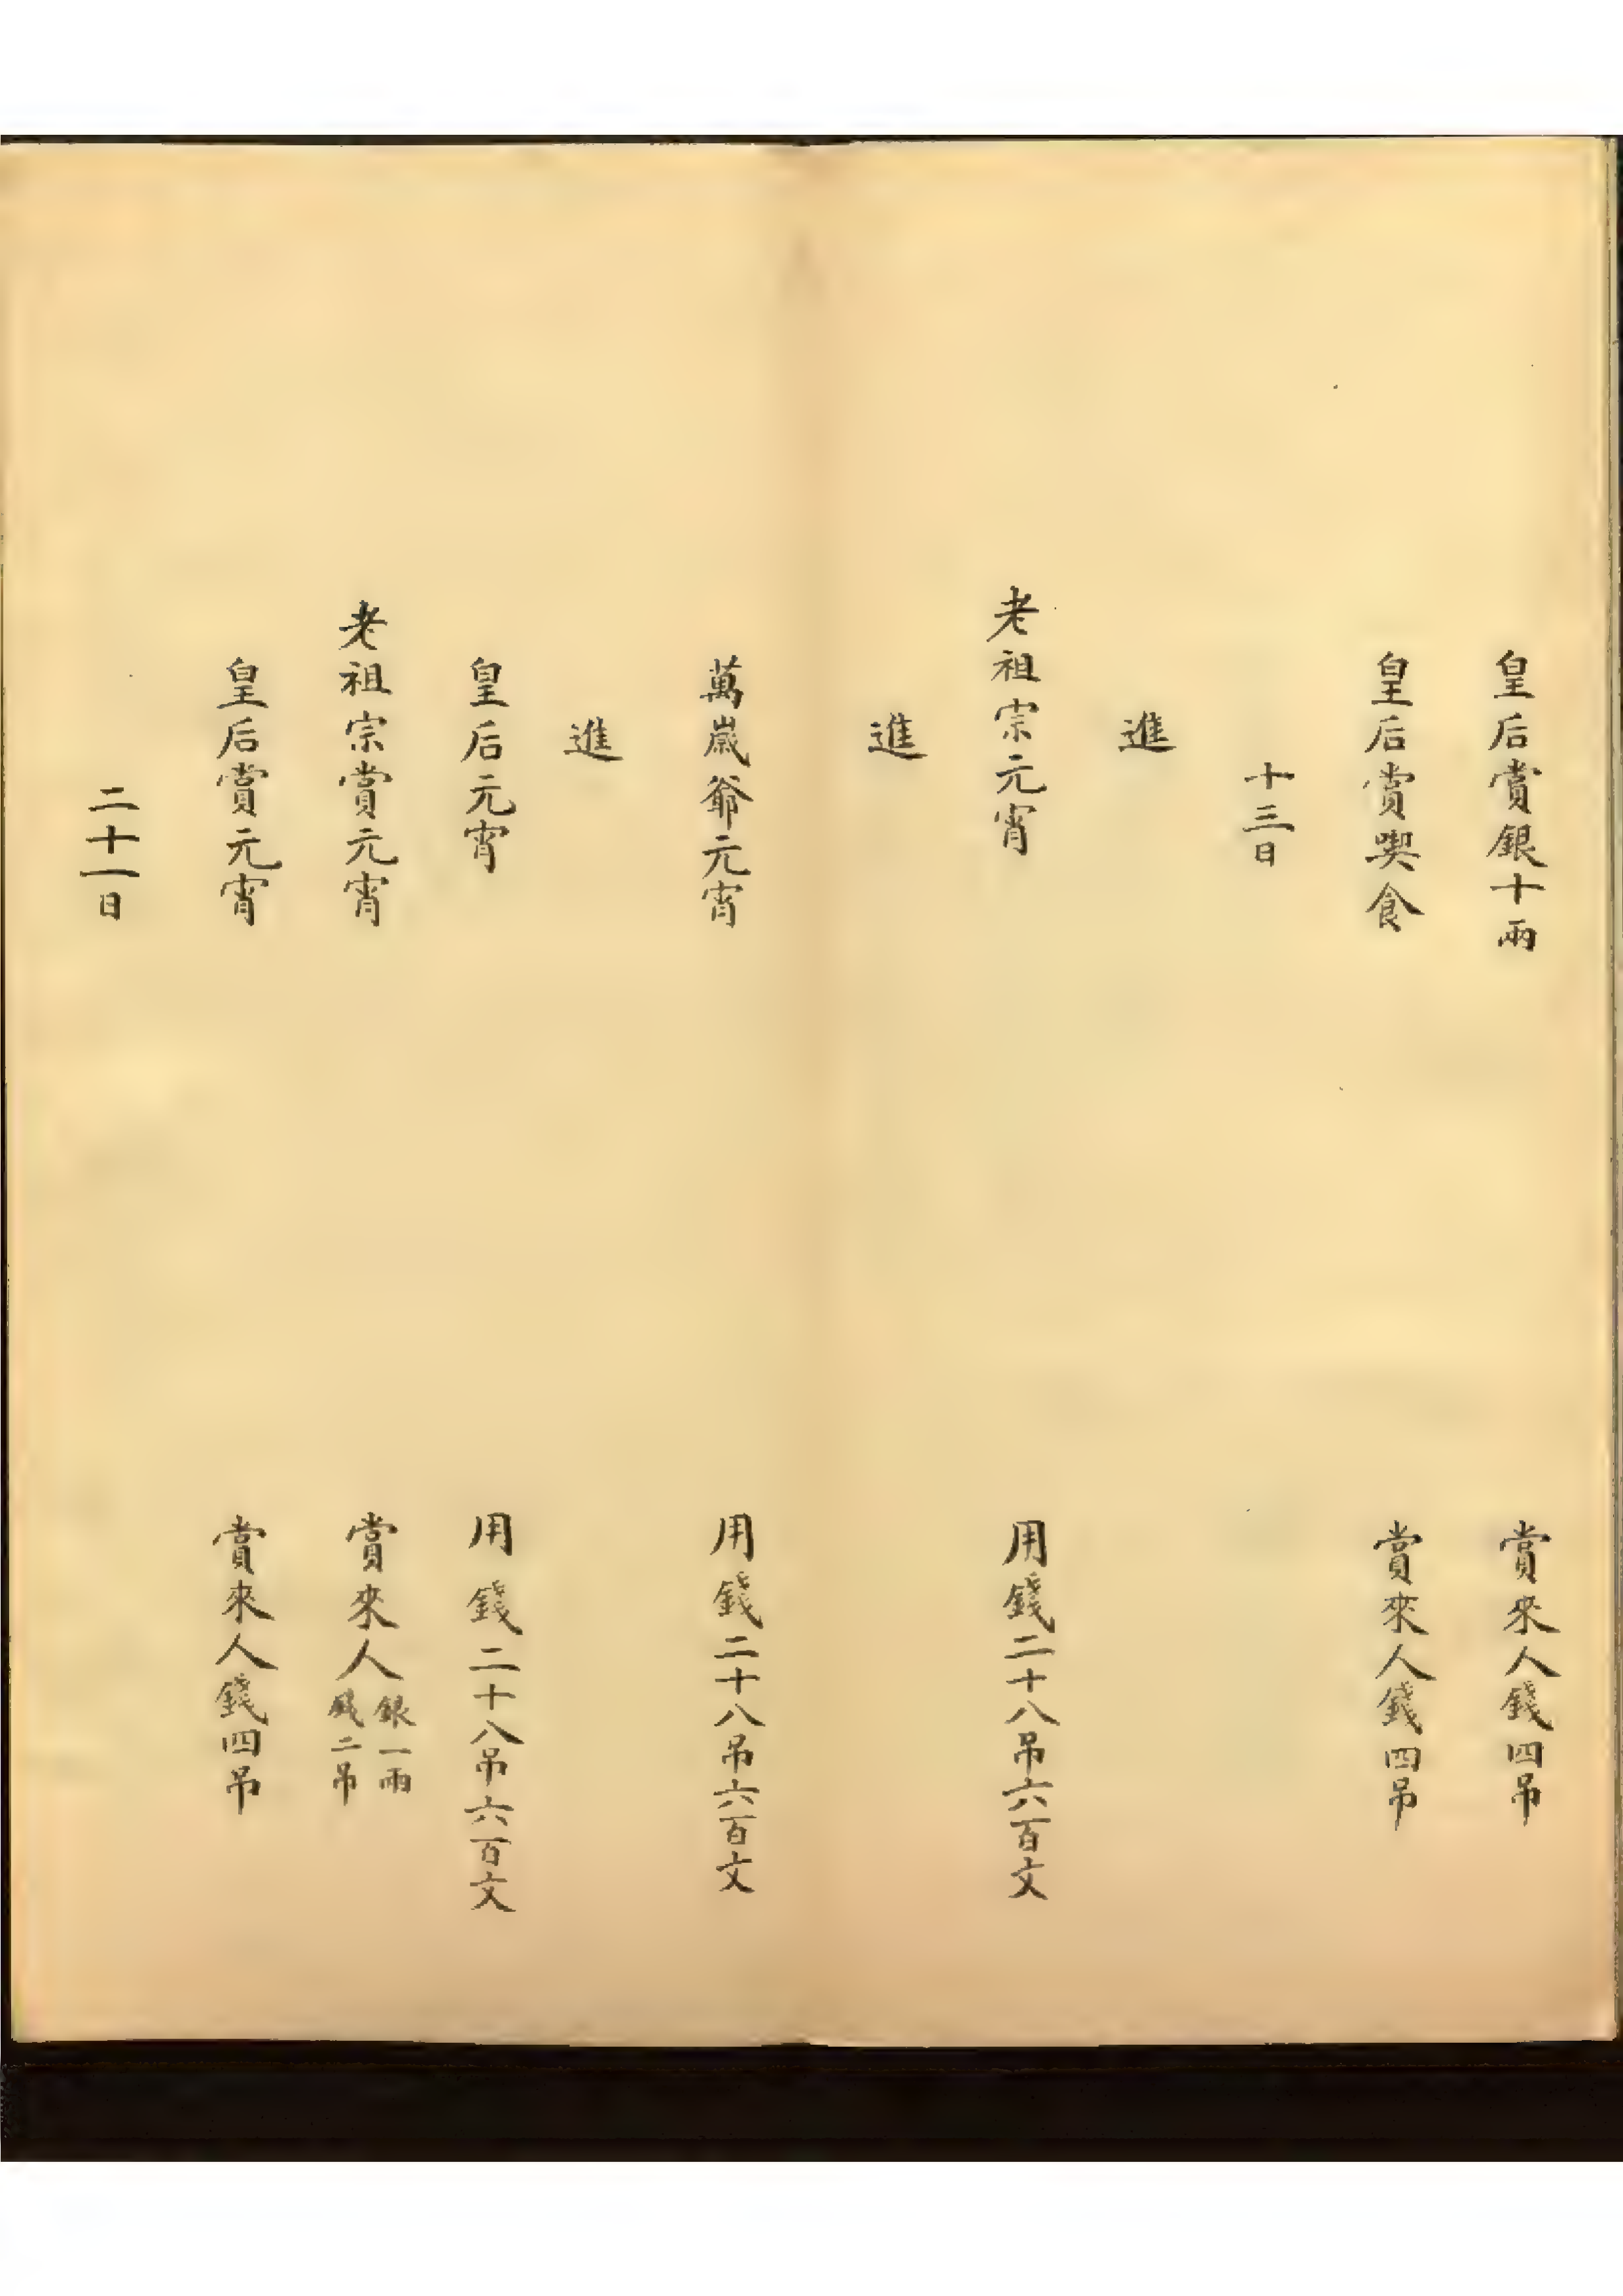 皇后賞銀十兩 賞來人錢四吊
皇后賞 食 賞來人錢四吊
十三日
進
老祖宗元宵 用錢二十八吊六百文
進
萬歲爺元宵 用錢二十八吊六百文
進
皇后元宵 用錢二十八吊六百文
老祖宗賞元宵 賞來人銀一兩錢二吊
皇后賞元宵 賞來人錢四吊
二十一日